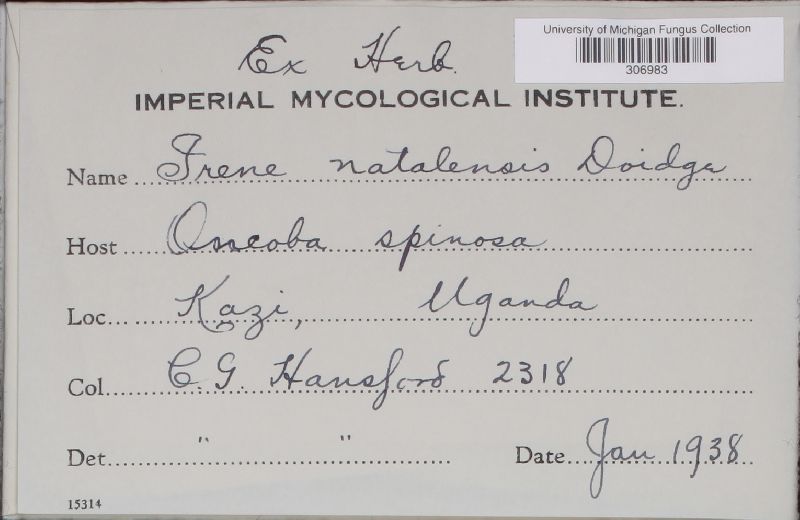 University of Michigan Fungus Collection
306983
Ex Herb.
IMPERIAL MYCOLOGICAL INSTITUTE.
Name Irene natalensis Doidge
Host Oncoba spinosa
Loc. Kazi, Uganda
Col. C. G. Hansford 2318
Det. " " Date Jan 1938
15314